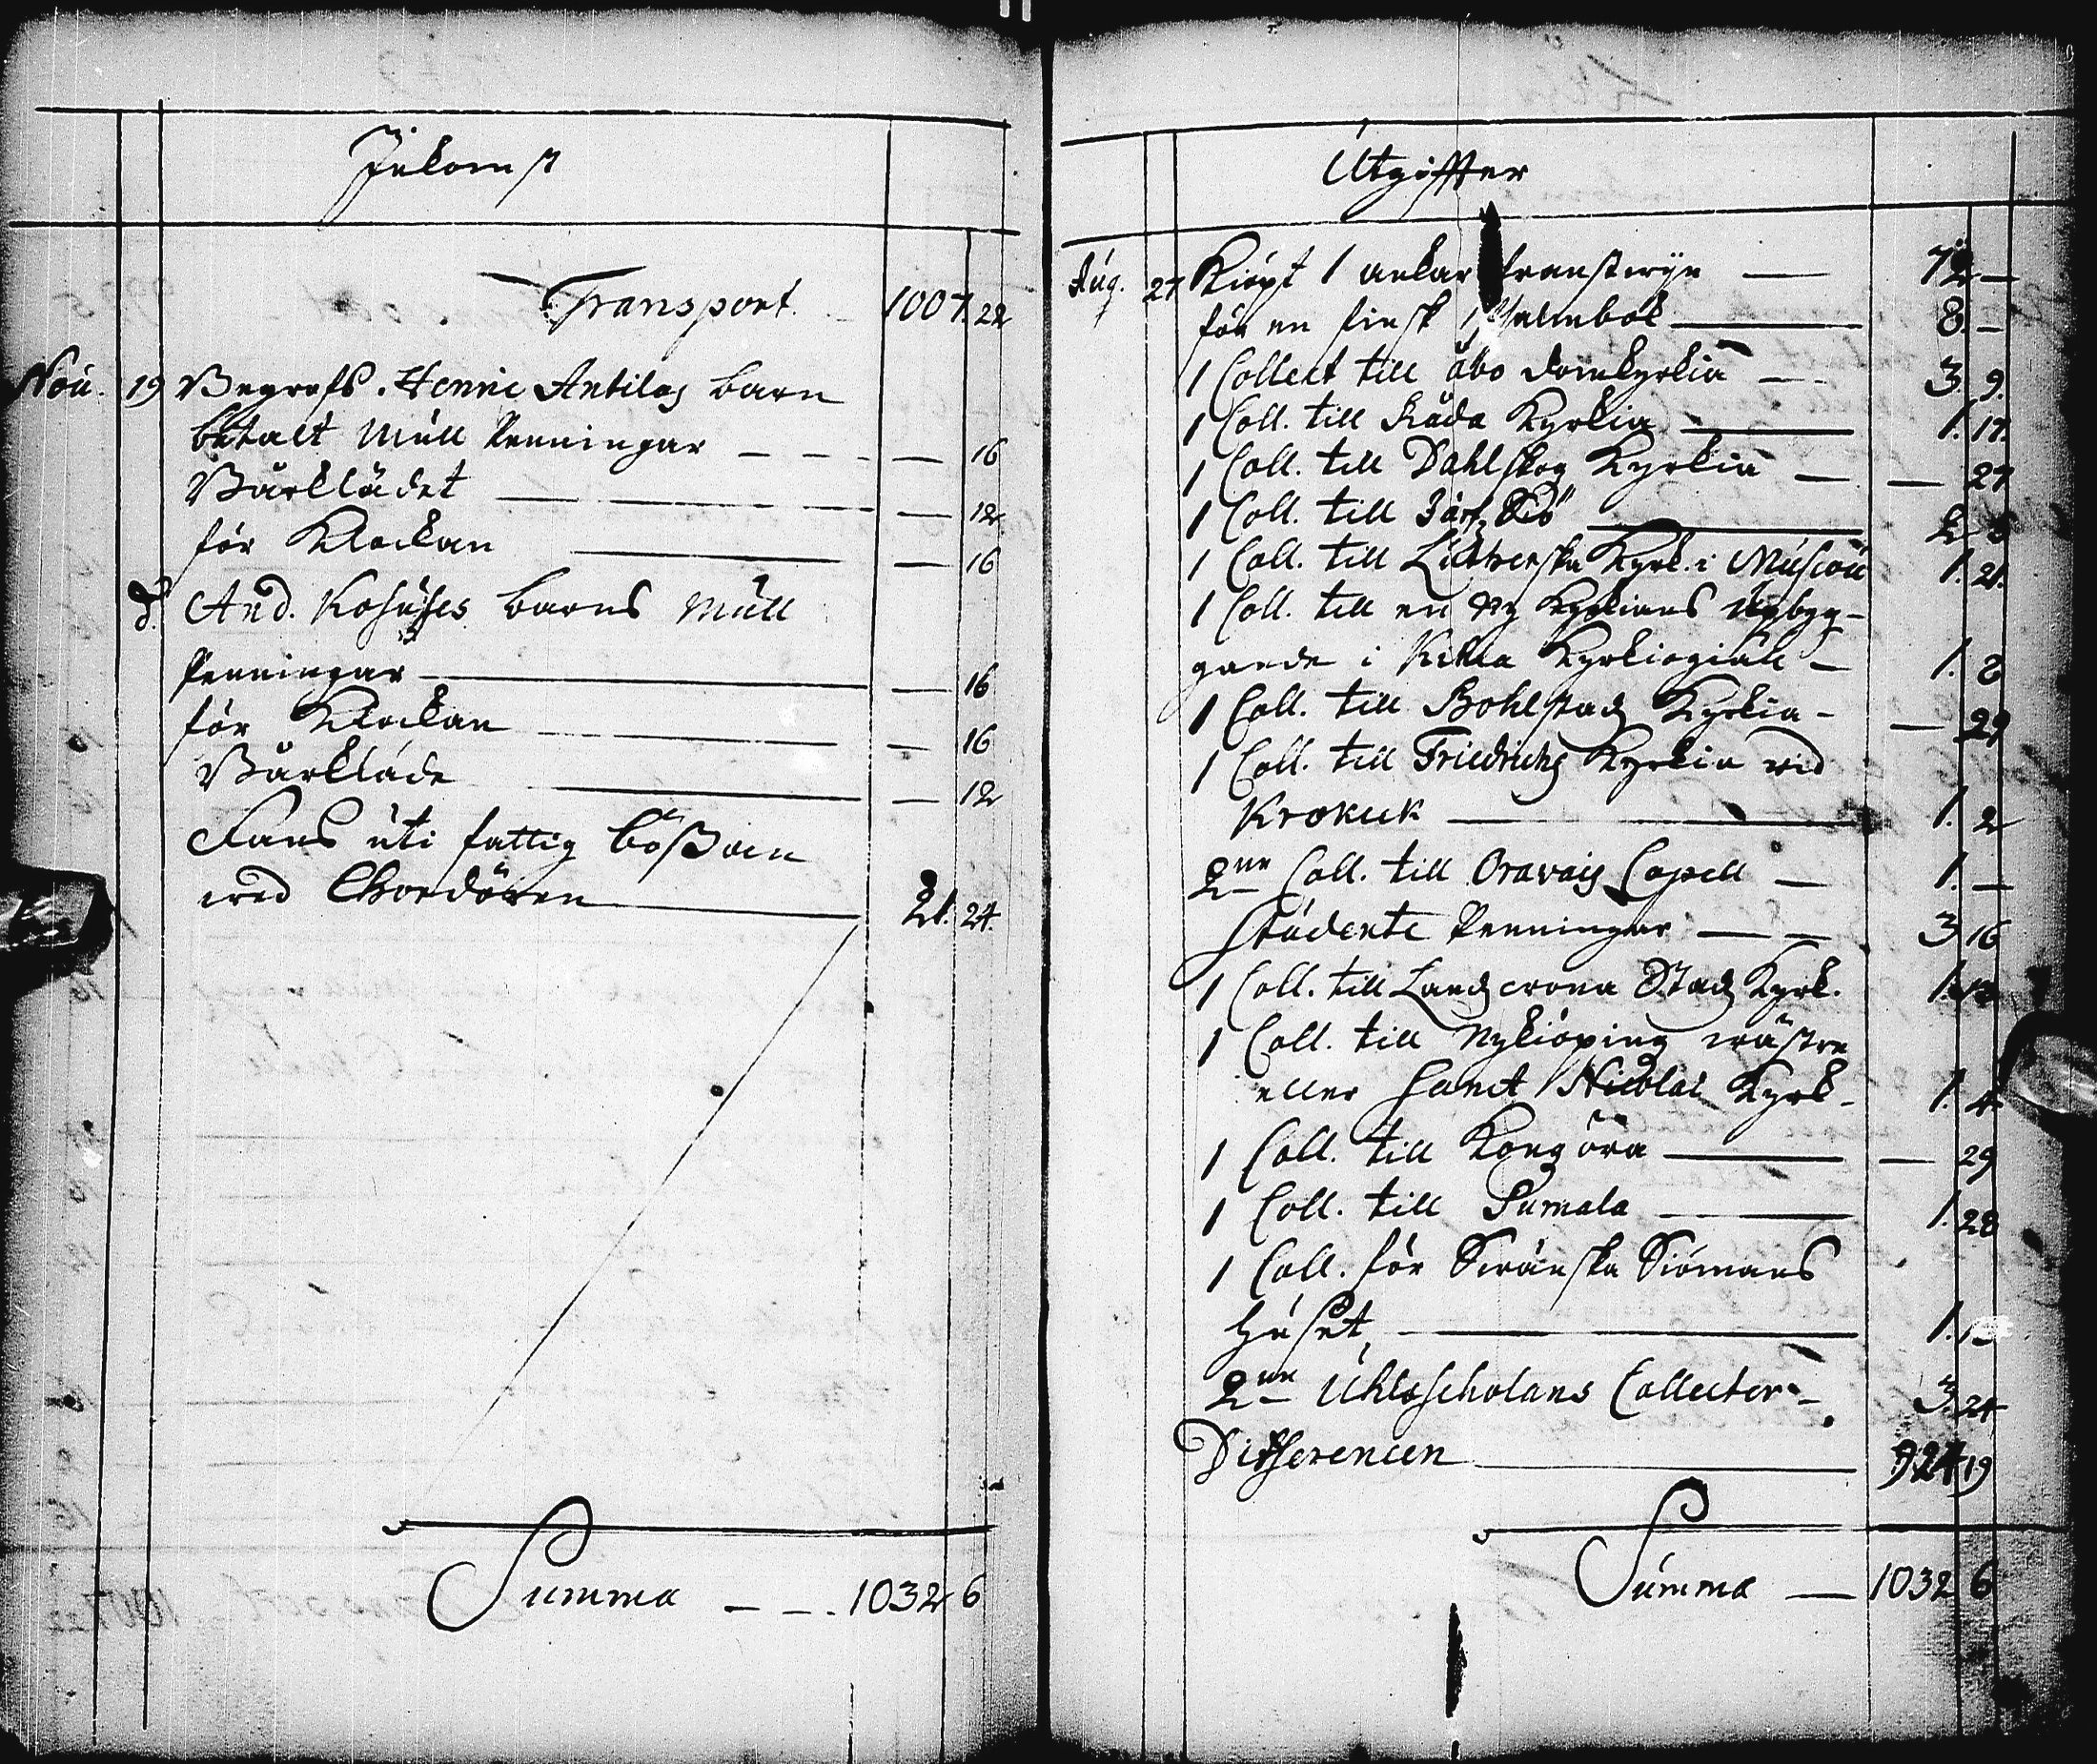 Inkomst
Transport. 1007. 22
Nov. 19 Begrofs. Henric Antilas barn
betalt Mull Penningar — 16
Bårklädet — 12
för Klockan — 16
d. And. Kosuses barns Mull
Penningar — 16
för Klockan — 16
Bårkläde — 12
Fans uti fattig bössan
wed Chordören 21. 24.
Summa 1032 6
Utgiffter
Aug. 27 Kiöpt 1 ankar franstwijn — 72 —
för en finsk Psalmbok — 8. —
1 Collect till Åbo domkyrkia — 3. 9.
1 Coll. till Råda Kyrkia — 1. 17.
1 Coll. till Dahlskog Kyrkia — 27
1 Coll. till Siö —
1 Coll. till Lutherska Kyrk. i Muscou 1. 21.
1 Coll. till en Ny Kyrkians upbyg-
gande i Kyrkiogiäll — 1. 8
1 Coll. till Bohlstads Kyrkia — 29
1 Coll. till Friedrichs Kyrkia wid
Krokuk — 1. 2
2ne Coll. till Oravais Capell — 1. —
Studente Penningar — 3 16
1 Coll. till Landscrona Stads Kyrk. 1.
1 Coll. till Nykiöping wästra
eller Sanct Nicolai Kyrk. 1. 4
1 Coll. till Kongs öra — 29
1 Coll. till Sumala — 1. 28
1 Coll. för Swänska Siömans
Huset, — 1.
2ne Uhloscholans Collecter — 3. 24
Differencen — 924 19
Summa — 1032 6